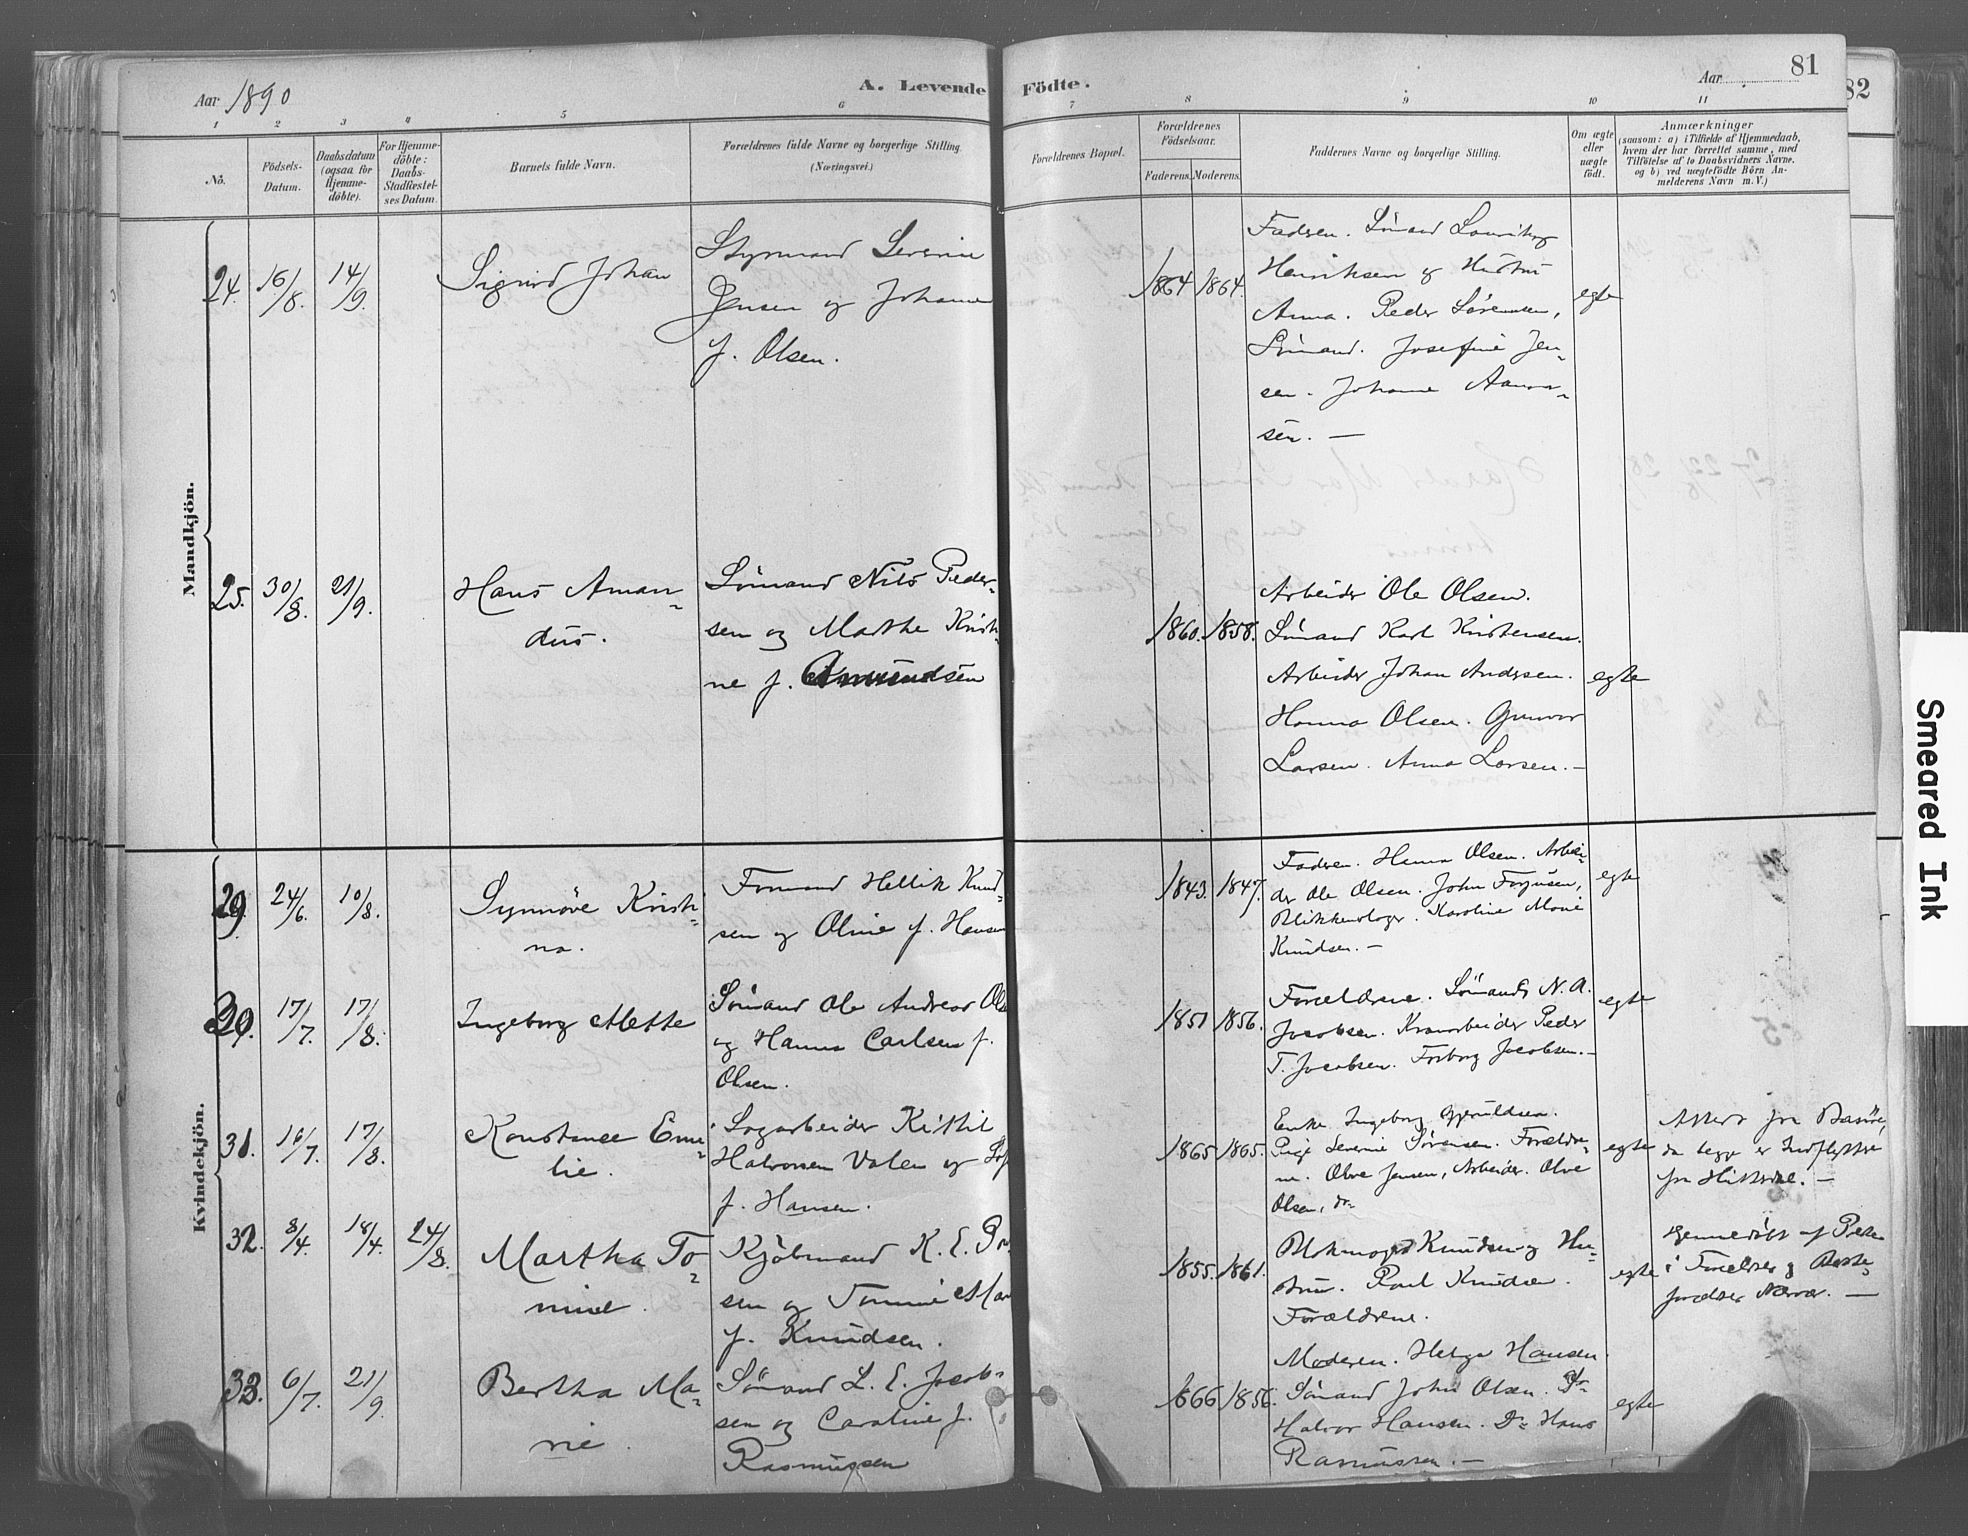 Aar 1890
A. Levende Födte.
Aar
81
82
1 2 3 4 5 6 7 8 9 10 11
No.
Födsels-
Datum.
Daabsdatum
(ogsaa for
Hjemme-
döbte).
For Hjemme-
döbte:
Daabs-
Stadfæstel-
ses Datum.
Barnets fulde Navn.
Forældrenes fulde Navne og borgerlige Stilling.
(Næringsvei.)
Forældrenes Bopæl.
Forældrenes
Födselsaar.
Faderens. Moderens.
Faddernes Navne og borgerlige Stilling.
Om ægte
eller
uægte
født.
Anmærkninger
(saasom: a) i Tilfælde af Hjemmedaab,
hvem der har forrettet samme, med
Tilföielse af to Daabsvidners Navne,
og b) ved uægtefödte Börn An-
melderens Navn m. V.)
Mandkjön.
24. 16/8. 14/9. Sigurd Johan
Styrmand Severin
Jensen og Johanne
f. Olsen.
1864 1864.
Fadren. Sömand
Henriksen og Hustru
Anna. Peder Sörensen,
Sömand. Josefine Jen-
sen. Johanne
sen. —
egte
25. 30/8. 21/9. Hans Aman-
dus.
Sömand Nils Peder-
sen og Marthe Kristi-
ne f. Amundsen
1860. 1858.
Arbeider Ole Olsen.
Sömand Karl Kristensen.
Arbeider Johan Andersen.
Hanna Olsen. Gunvor
Larsen. Anna Larsen. —
egte
Kvindekjön.
29. 24/6. 10/8. Synnöve Kristi-
na.
Formand Hellik Knud-
sen og Oline f. Hansen
1843. 1847.
Fadren. Hanna Olsen. Arbei-
der Ole Olsen. John
Blikkenslager. Karoline Marie
Knudsen. —
egte
30. 17/7. 17/8. Ingeborg Mette
Sömand Ole Andreas
og Hanna Carlsen f.
Olsen.
1851 1856.
Forældrene. Sömand N. A.
Jacobsen. Peder
T. Jacobsen. Jacobsen. —
egte
31. 16/7. 17/8. Konstance Emi-
lie.
Sagarbeider Kittil
Halvorsen Valen og
f. Hansen.
1865 1865.
Enke Ingeborg
Pige Severine Sörensen. Forældre-
ne. Olve Jensen, Arbeider. Olve
Olsen, do
egte
Attest fra
da begge er Indflyttere
fra Hitterdal. —
32. 8/4. 18/4. 24/8. Martha To-
mine.
Kjöbmand K. E.
sen og Tomine
f. Knudsen.
1855. 1861.
Knudsen og Hu-
stru. Paul Knudsen.
Forældrene.
egte
Hjemmedöbt af
i Forældres og Beste-
forældres Nærvær. —
33. 6/7. 21/9. Bertha Ma-
rie.
Sömand L. E. Jacob-
sen og Caroline f.
Rasmussen
1866 1856.
Moderen. Helga Hansen.
Sömand John Olsen. Do
Halvor Hansen. Do Hans
Rasmussen. —
egte
Smeared Ink